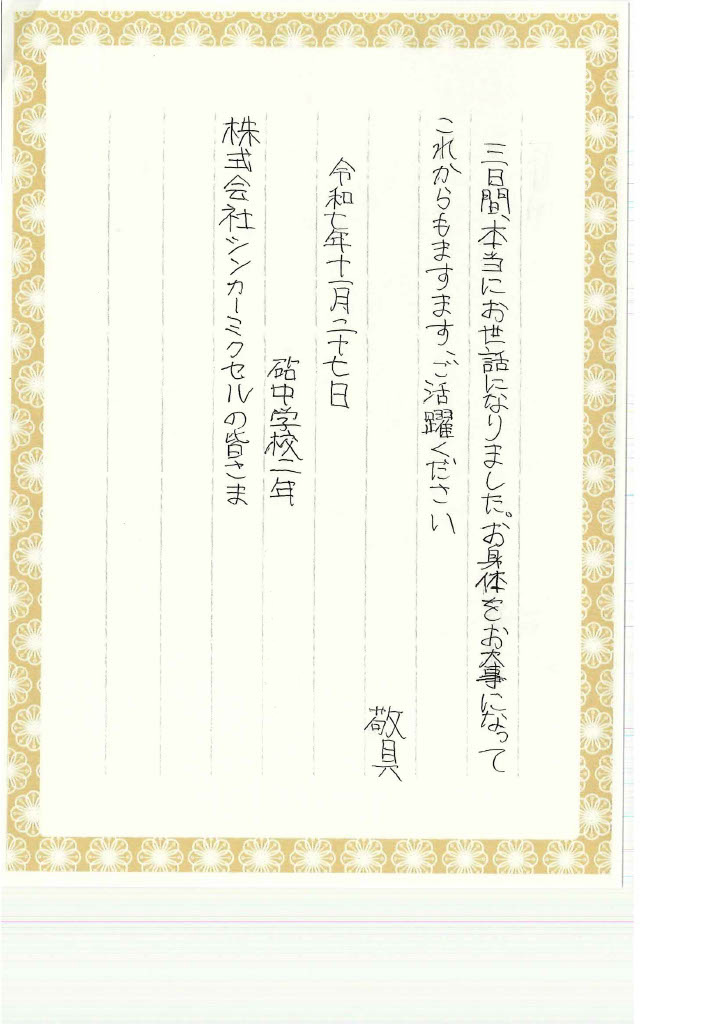 三日間、本当にお世話になりました。お身体をお大事になって
これからもますます、ご活躍ください
敬具
令和七年十一月二十七日
砧中学校二年
株式会社シンカーミクセルの皆さま